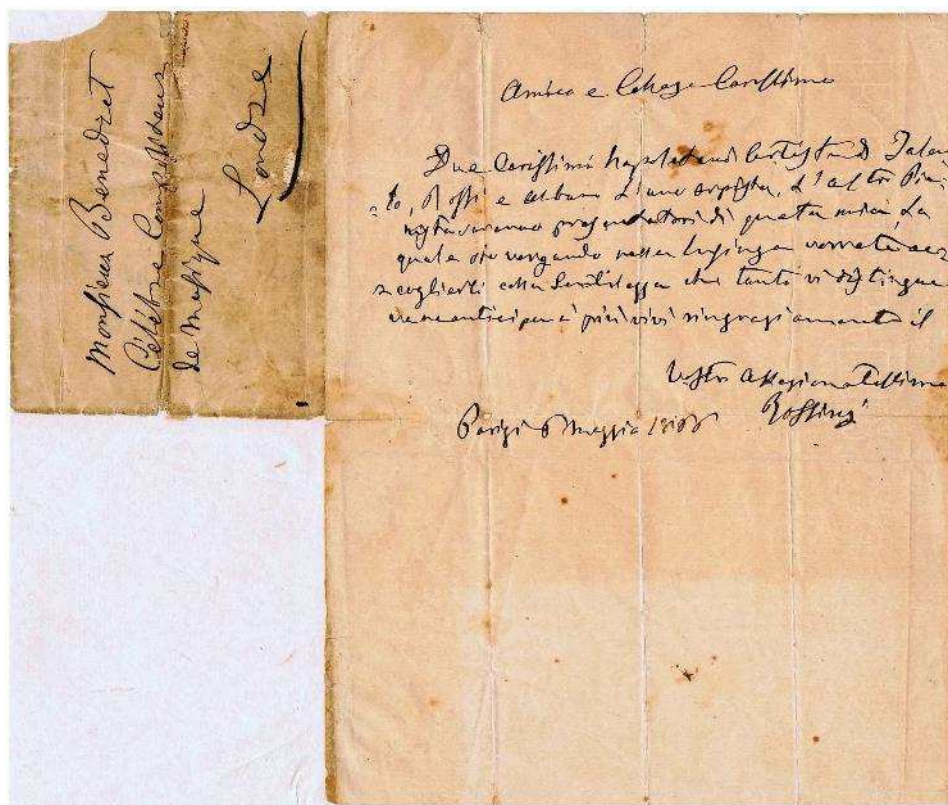 Monsieur Benedict
Célèbre Compositeur
de Musique
Londre
Amico e Collega Carissimo
Due Carissimi Napoletani Artisti di Talen
=to, Rossi e Albano l'uno arpista, l'altro Pia
nista saranno presentatori di questa mia La
quale sto vergando nella lusinga vorrete ac
=coglierli colla Gentilezza che tanto vi distingue
ve ne anticipa i più vivi ringraziamenti il
Vostro Affezionatissimo
Rossini
Parigi 6 Maggio